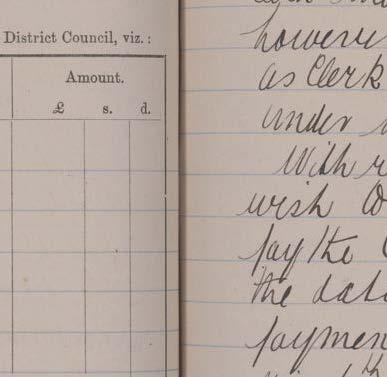 District Council, viz.:
Amount.
£ s. d.
however
as Clerk
under
With
wish
pay the
the date
paymen